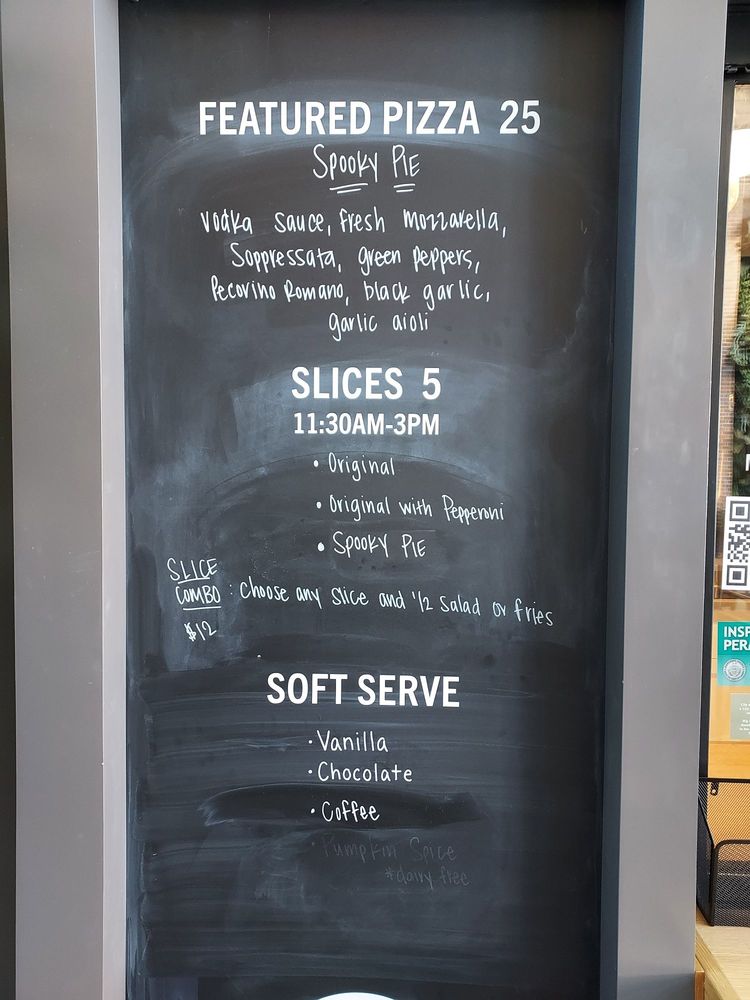 FEATURED PIZZA 25
Spooky Pie
Vodka sauce, fresh mozzarella,
Soppressata, green peppers,
Pecorino Romano, black garlic,
garlic aioli
SLICES 5
11:30AM-3PM
• Original
• Original with Pepperoni
• Spooky Pie
SLICE
COMBO : choose any slice and 1/2 salad or fries
$12
SOFT SERVE
• Vanilla
• Chocolate
• Coffee
• Pumpkin Spice
*dairy free
INSP
PER